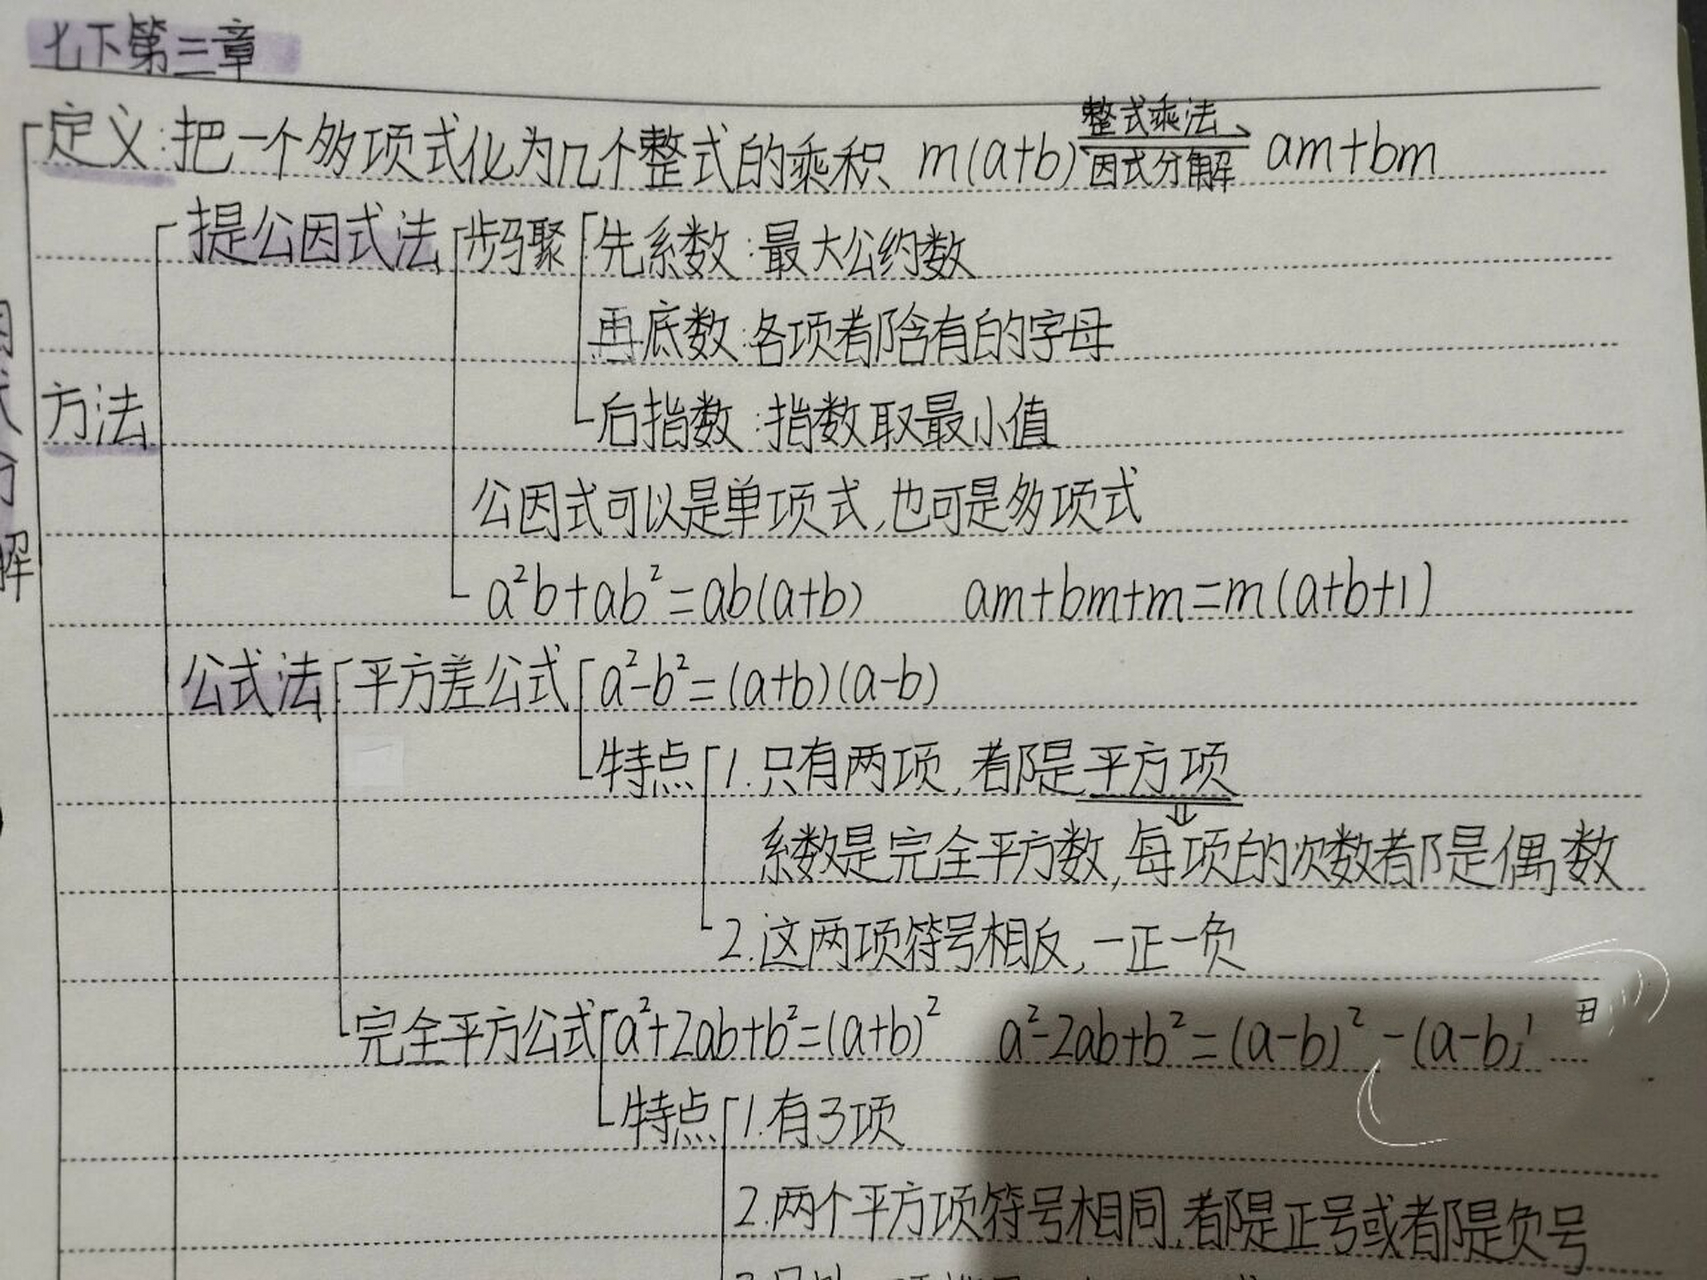 七下第三章
定义:把一个多项式化为几个整式的乘积 m(a+b) 整式乘法 因式分解 am+bm
提公因式法 步骤 先系数:最大公约数
再底数:各项都含有的字母
方法 后指数:指数取最小值
公因式可以是单项式,也可是多项式
a²b+ab²=ab(a+b) am+bm+m=m(a+b+1)
公式法 平方差公式 a²-b²=(a+b)(a-b)
特点 1.只有两项,都是平方项
系数是完全平方数,每项的次数都是偶数
2.这两项符号相反,一正一负
完全平方公式 a²+2ab+b²=(a+b)² a²-2ab+b²=(a-b)² -(a-b)
特点 1.有3项
2.两个平方项符号相同,都是正号或都是负号